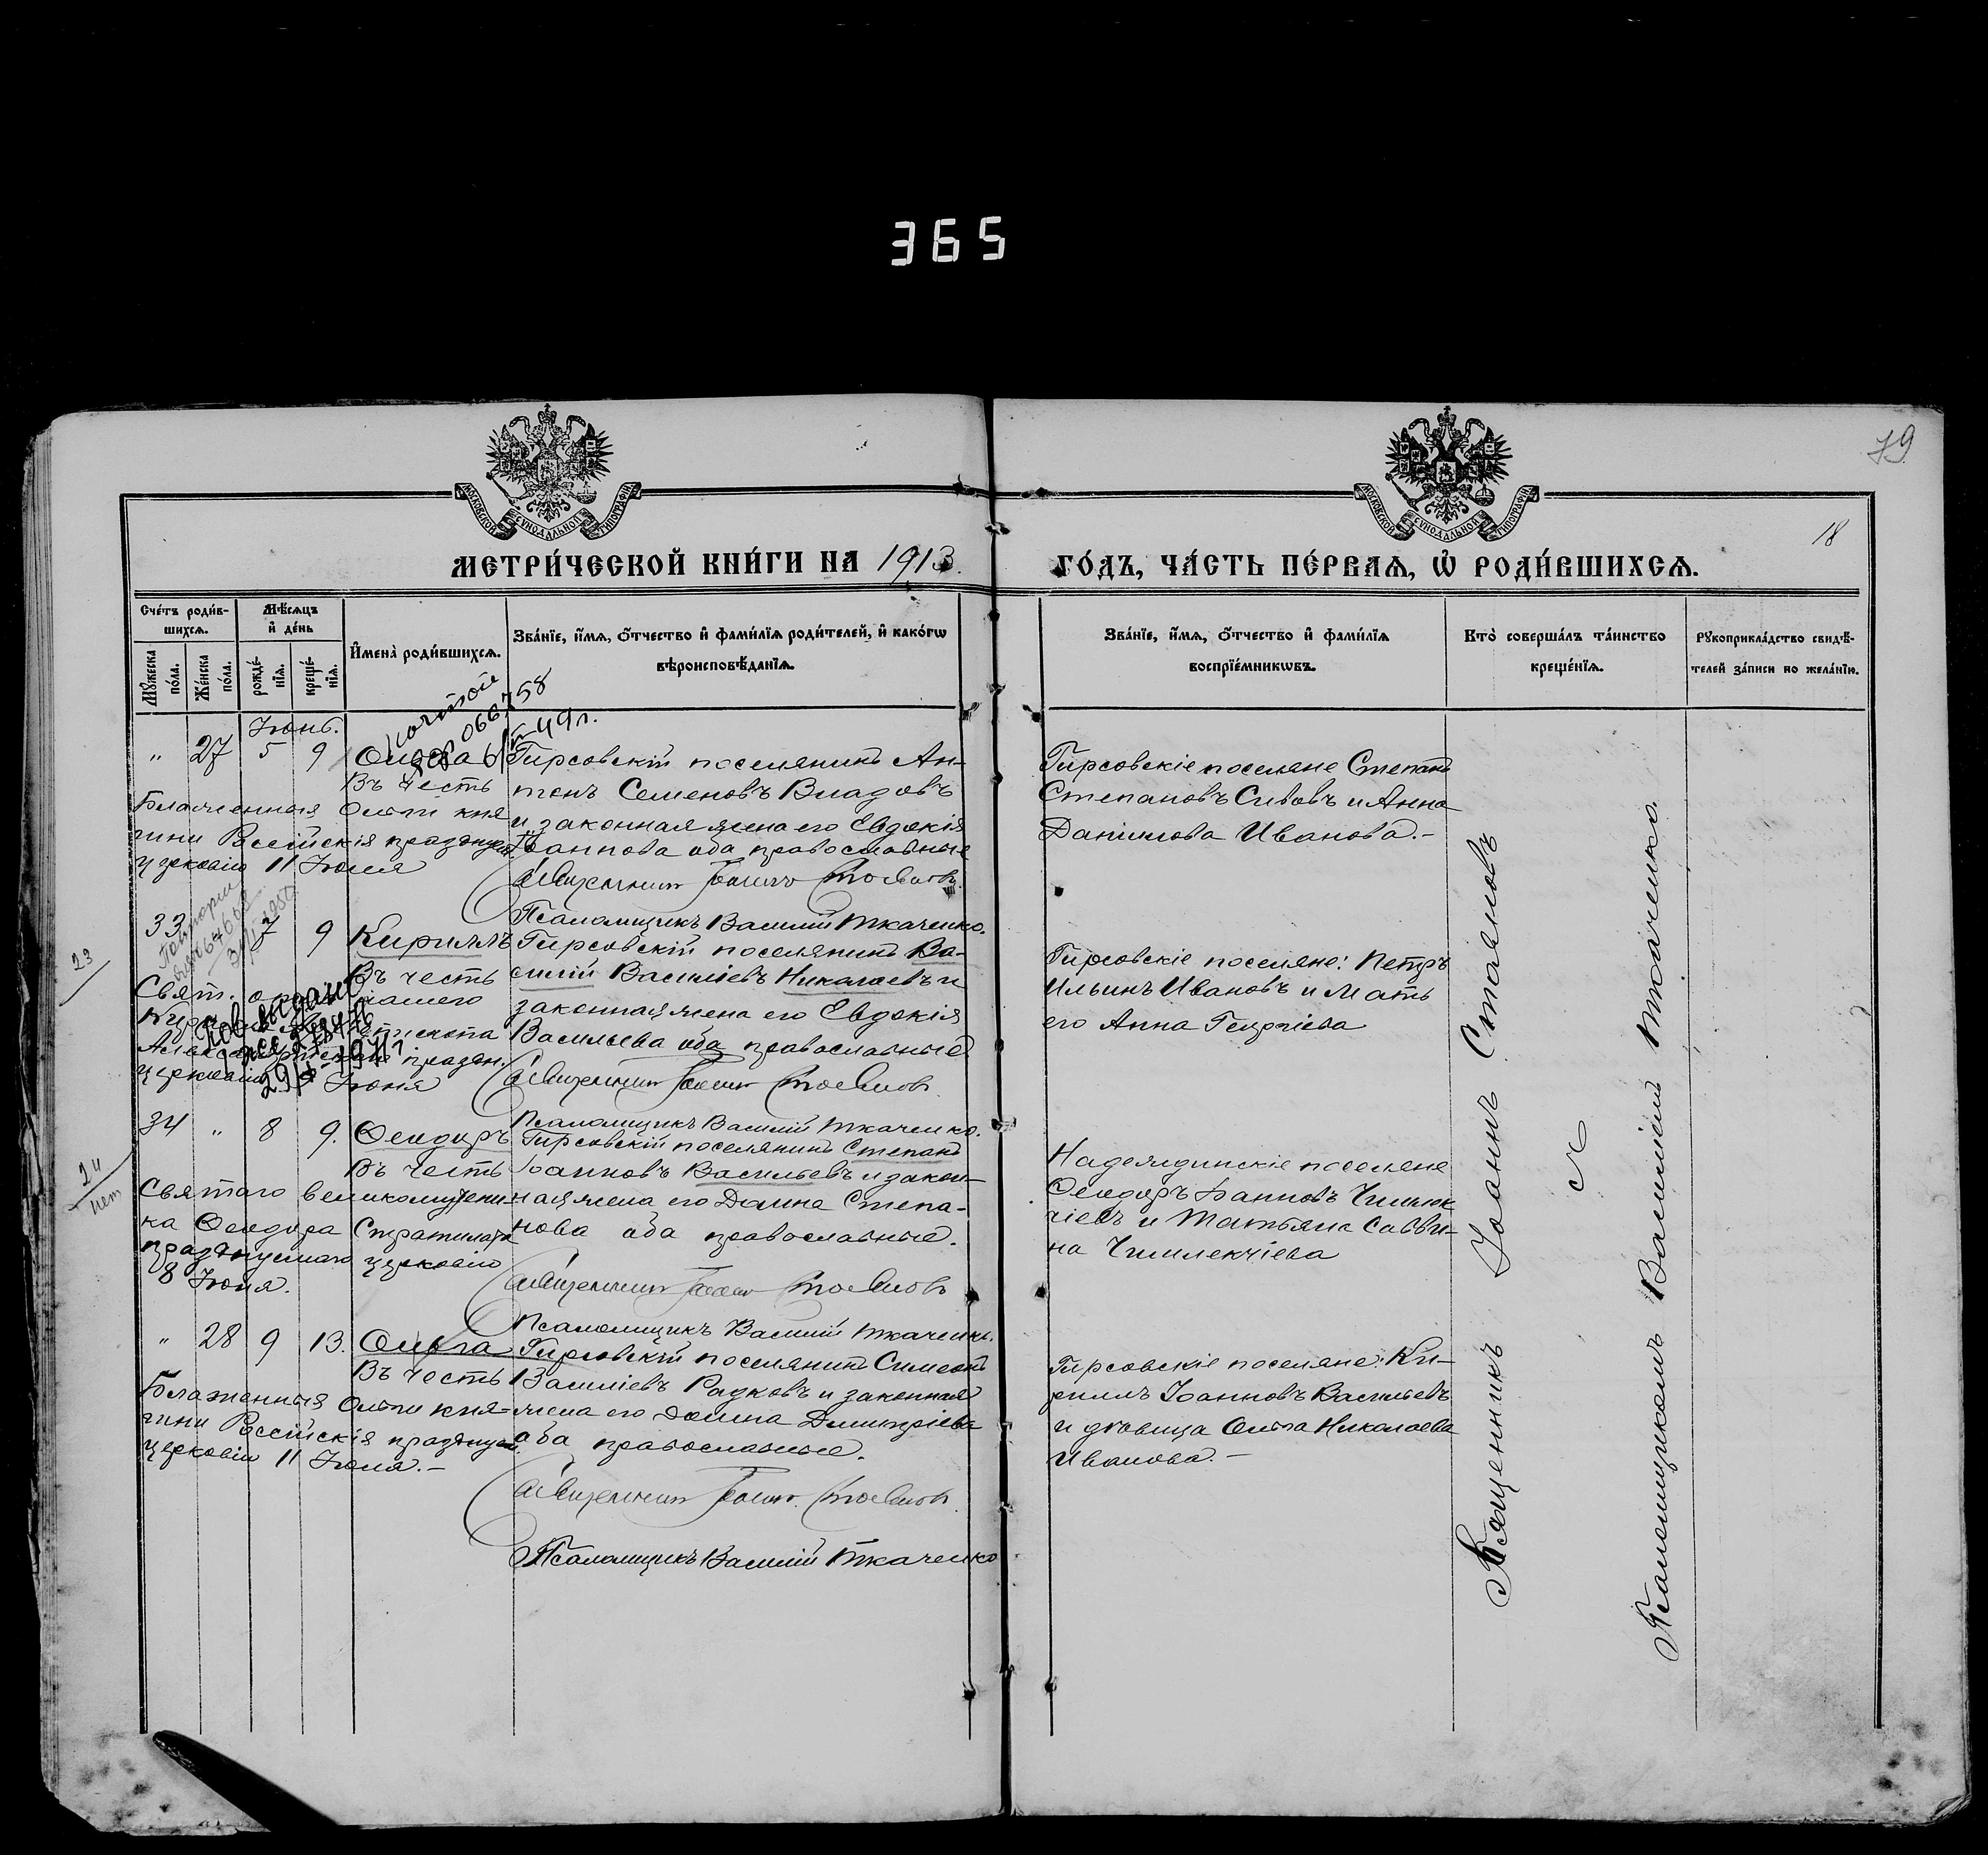 365
79
18
МОСКОВСКОЙ СѴНОДАЛЬНОЙ ТИПОГРАФІИ
МОСКОВСКОЙ СѴНОДАЛЬНОЙ ТИПОГРАФІИ
МЕТРИ́ЧЕСКОЙ КНИ́ГИ НА 1913.
ГО́ДЪ, ЧА́СТЬ ПЕ́РВАѦ, Ѡ҆ РОДИ́ВШИХСѦ.
Сче́тъ роди́в-
шихсѧ.
Мꙋ́жеска по́ла.
Же́нска по́ла.
Мѣ́сѧцъ
и҆ де́нь
рожде́-
нїѧ.
креще́-
нїѧ.
И҆мена̀ роди́вшихсѧ.
Зва́нїе, и҆́мѧ, ѻ҆́тчество и҆ фами́лїѧ роди́телей, и҆ како́гѡ
вѣроисповѣ́данїѧ.
Зва́нїе, и҆́мѧ, ѻ҆́тчество и҆ фами́лїѧ
воспрїе́мникѡвъ.
Кто̀ соверша́лъ та́инство
креще́нїѧ.
Рꙋкоприкла́дство свидѣ́-
телей за́писи по жела́нїю.
Іюнь.
" 27 5 9 Ольга
Въ честь
Блаженныя Ольги кня-
гини Россійскія празднуем.
церковію 11 Іюля
Гирсовскій поселянинъ Ан-
тонъ Семеновъ Владовъ
и законная жена его Евдокія
Іоаннова оба православные
Священникъ Іоаннъ Стояновъ
Псаломщикъ Василій Ткаченко.
Гирсовскіе поселяне Степанъ
Степановъ Сивовъ и Анна
Данилова Иванова.-
23
33 7 9 Кириллъ
Въ честь
Свят. нашего
епископа
праздн.
церковію 9 Іюня
Гирсовскій поселянинъ Ва-
силій Василіевъ Николаевъ и
законная жена его Евдокія
Васильева оба православные
Священникъ Іоаннъ Стояновъ
Псаломщикъ Василій Ткаченко.
Гирсовскіе поселяне: Петръ
Ильинъ Ивановъ и мать
его Анна Георгіева
24
нет
34 " 8 9. Ѳеодоръ
Въ честь
Святаго великомучени-
ка Ѳеодора Стратилата
празднуемаго церковію
8 Іюня.
Гирсовскій поселянинъ Степанъ
Іоанновъ Васильевъ и закон-
ная жена его Домна Степа-
нова оба православные.
Священникъ Іоаннъ Стояновъ
Псаломщикъ Василій Ткаченко.
Надеждинскіе поселяне
Ѳеодоръ Іоанновъ Чимлек
чіевъ и Татьяна Савви-
на Чимлекчіева
" 28 9 13. Ольга
Въ честь
Блаженныя Ольги кня-
гини Россійскія празднуем.
церковію 11 Іюля.-
Гирсовскій поселянинъ Симеонъ
Василіевъ Радковъ и законная
жена его Домна Димитріева
оба православные.
Священникъ Іоаннъ Стояновъ
Псаломщикъ Василій Ткаченко
Гирсовскіе поселяне: Ки-
риллъ Іоанновъ Васильевъ
и дѣвица Ольга Николаева
Иванова.-
Священникъ Іоаннъ Стояновъ
съ
Псаломщикомъ Василіемъ Ткаченко.